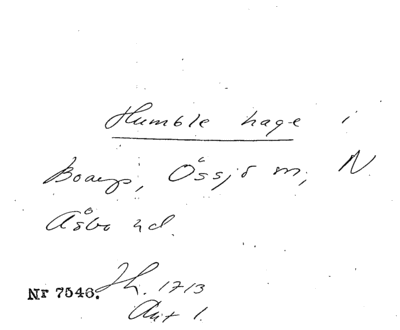 Humble hage i
Boarp, Össjö sn, N
Åsbo hd.
Jh. 1713
Nr 7546.
Akt 1.